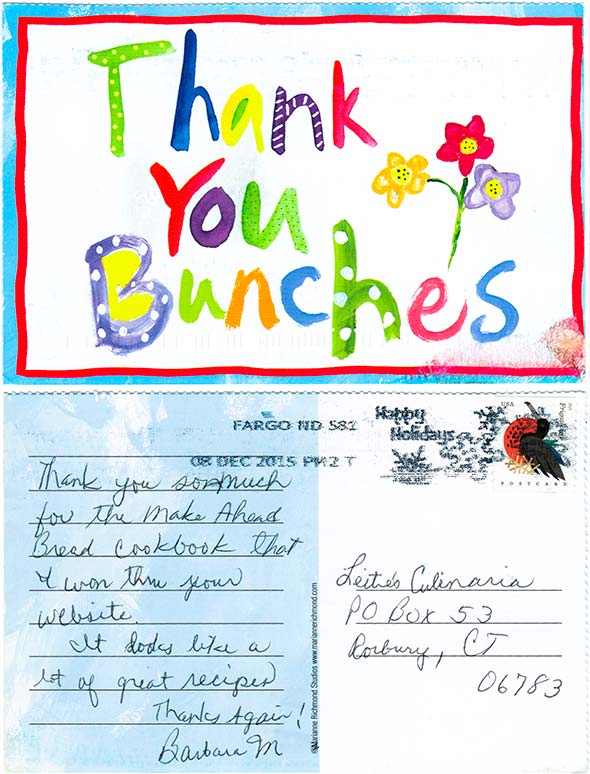 Thank
You
Bunches
FARGO ND 581
08 DEC 2015 PM 2 T
Happy
Holidays
USA
POSTCARD
Thank you so much
for the Make Ahead
Bread cookbook that
I won thru your
website.
It looks like a
lot of great recipes
Thanks Again!
Barbara M
©Marianne Richmond Studios www.mariannerichmond.com
Leite's Culinaria
PO Box 53
Roxbury, CT
06783